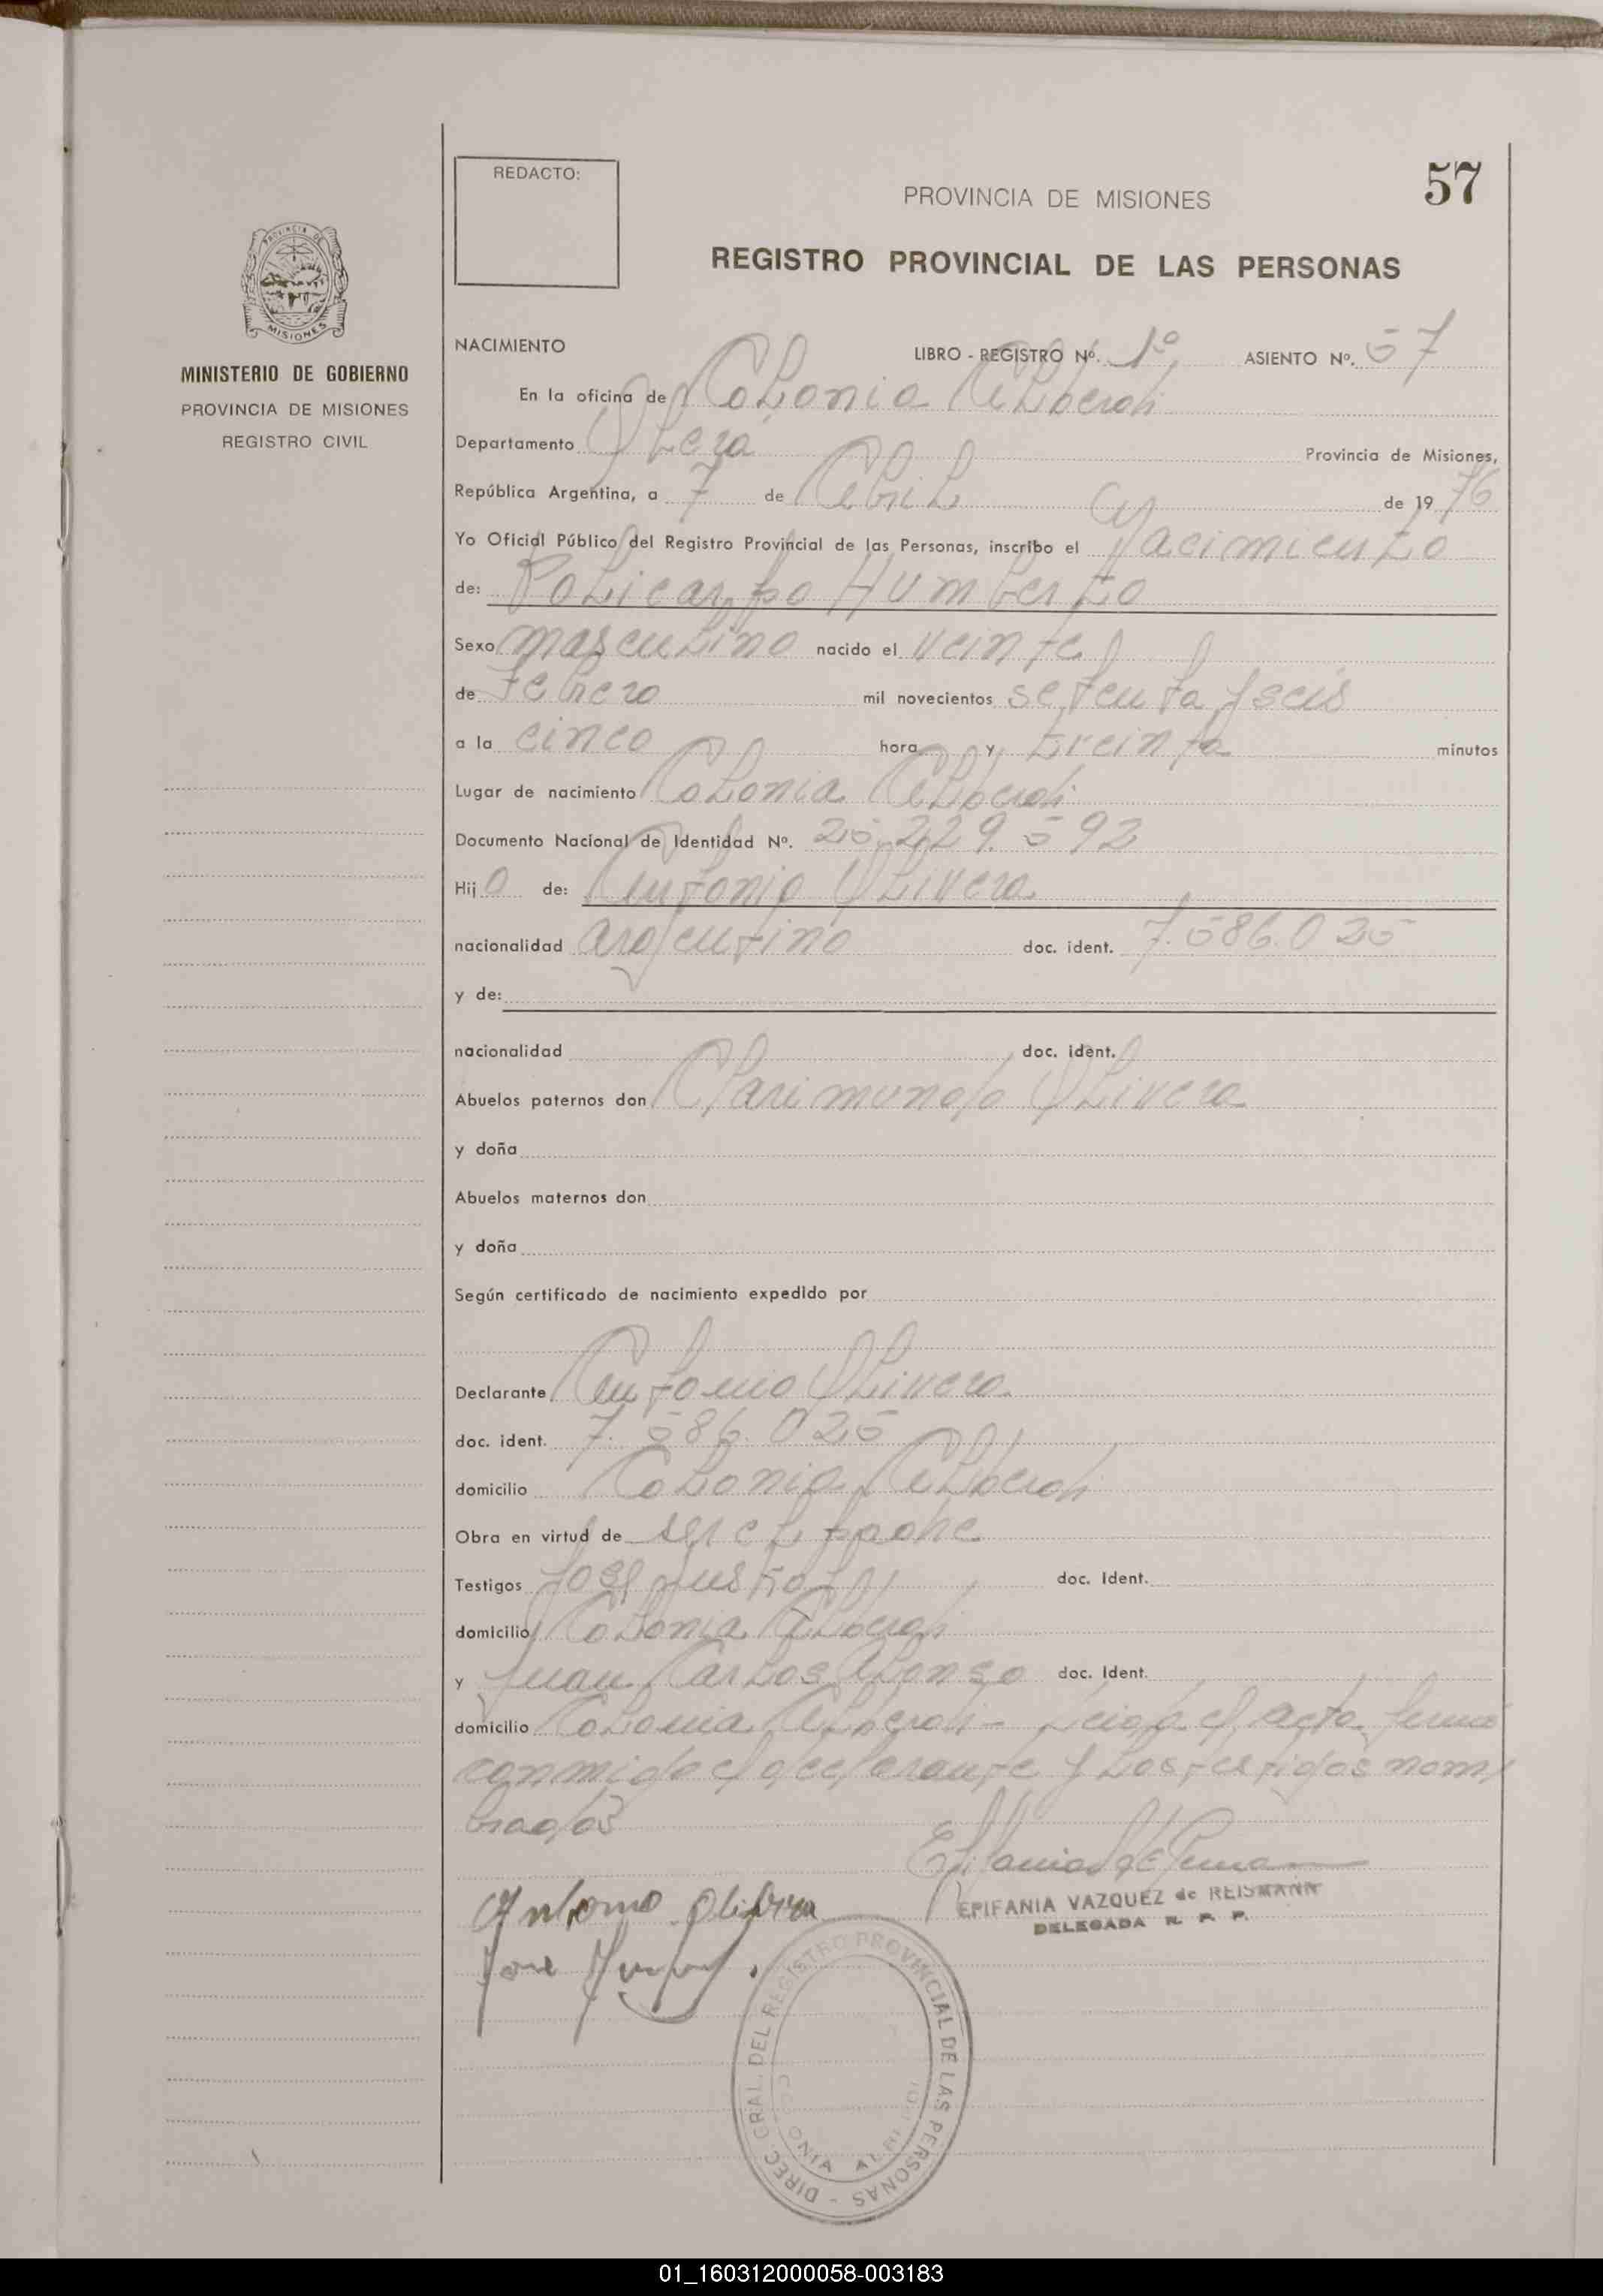 REDACTO:
57
PROVINCIA DE MISIONES
REGISTRO PROVINCIAL DE LAS PERSONAS
PROVINCIA DE
MISIONES
MINISTERIO DE GOBIERNO
PROVINCIA DE MISIONES
REGISTRO CIVIL
NACIMIENTO LIBRO - REGISTRO Nº. 1º ASIENTO Nº. 57
En la oficina de Colonia Alberdi
Departamento Oberá Provincia de Misiones,
República Argentina, a 7 de Abril de 1976
Yo Oficial Público del Registro Provincial de las Personas, inscribo el Nacimiento
de: Policarpo Humberto
Sexo masculino nacido el veinte
de Febrero mil novecientos setenta y seis
a la cinco hora y treinta minutos
Lugar de nacimiento Colonia Alberdi
Documento Nacional de Identidad Nº. 25.229.592
Hijo de: Antonio Olivera
nacionalidad argentino doc. ident. 7.586.025
y de:
nacionalidad doc. ident.
Abuelos paternos don Clarimundo Olivera
y doña
Abuelos maternos don
y doña
Según certificado de nacimiento expedido por
Declarante Antonio Olivera
doc. ident. 7.586.025
domicilio Colonia Alberdi
Obra en virtud de ser el padre
Testigos José doc. Ident.
domicilio Colonia Alberdi
y Juan Carlos Alonso doc. Ident.
domicilio Colonia Alberdi - Leida el acta firma
conmigo el declarante y los testigos nom
brados
Antonio Olivera
EPIFANIA VAZQUEZ de REISMANN
DELEGADA R. P. P.
José
DIREC. GRAL. DEL REGISTRO PROVINCIAL DE LAS PERSONAS -
COLONIA ALBERDI
01_160312000058-003183